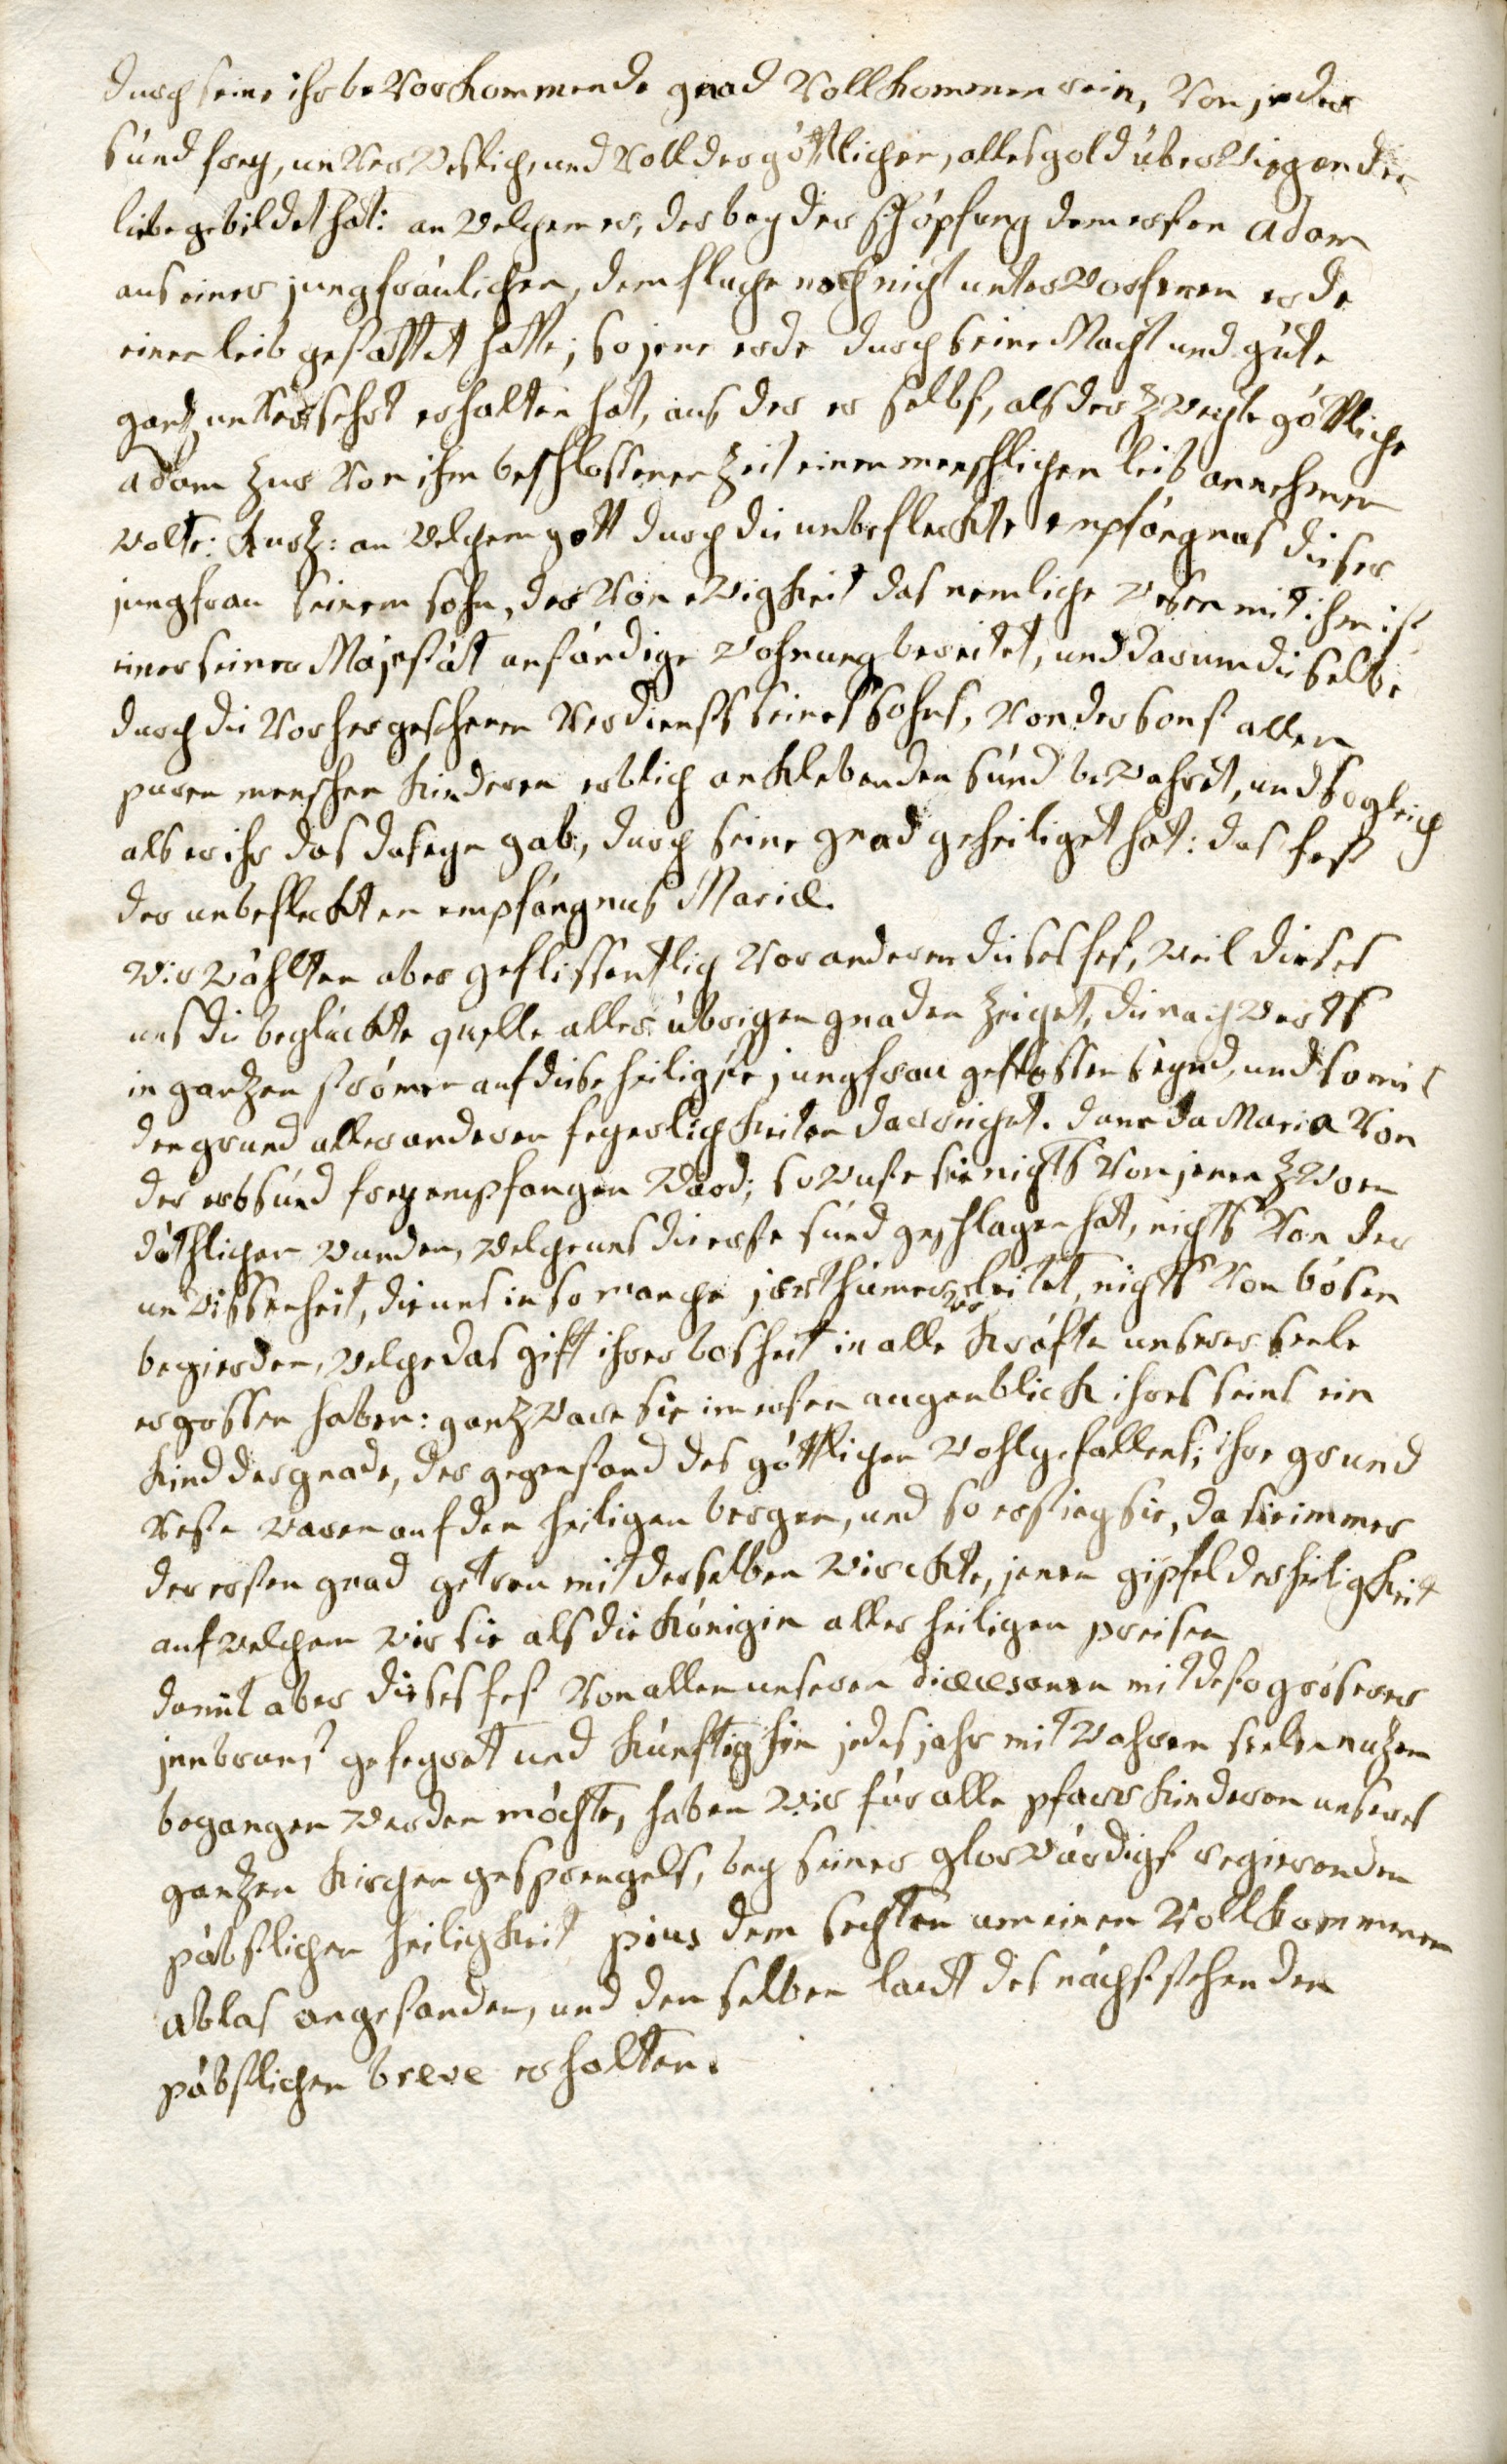 durch seine ihr bevorkommende gnad vollkommen rein, von jeder
sünd frey, unverweslich, und voll der göttlichen, alles gold überwiegenden
liebe gebildet hat: an welchem er, der bey der schöpfung dem ersten adam
aus einer jungfräulichen, dem fluche noch nicht unterworfenen erde
einen leib gestattet hatte; so jene erde durch seine Macht und güte
gantz unversehrt erhalten hat, aus der er selbst, als der zweyte göttliche
adam zur von ihm beschlossenen zeit einen menschlichen leib annehmen
wolte: Kurtz: an welchem gott durch die unbefleckte empfängnus dieser
jungfrau seinem sohn, der von ewigkeit das nemliche wesen mit ihm ist
einer seiner Majestät anständige wohnung bereitet, und darum die selbe
durch die vorhergesehenen verdienst seines sohns, von der sonst allen
puren menschen kinderen erblich anklebenden sünd bewahret, und sogleich
als er ihr das daseyn gab, durch seine gnad geheiliget hat: das fest
der unbefleckten empfängnus Mariæ.
wir wählten aber geflissentlich vor anderen dieses fest, weil dieses
uns die beglückte quelle aller übrigen gnaden zeiget, die nachwerts
in gantzen strömen auf diese heiligste jungfrau geflossen seynd, und somit
den grund aller anderen feyerlichkeiten darreichet. dann da Maria von
der erbsünd frey empfangen ward; so wuste sie nichts von jenen zwoen
döthlichen wunden, welche uns die erste sünd geschlagen hat, nichts von der
unwissenheit, die uns in so manche jrrthümer verleitet, nichts von bösen
begierden, welche das gift ihrer bosheit in alle kräfte unserer seele
ergossen haben: gantz ware sie im ersten augenblick ihres seins ein
kind der gnade, der gegenstand des göttlichen wohlgefallens; ihre grund
veste waren auf den heiligen bergen, und so erstieg sie, da sie immer
der ersten gnad getreu mit derselben wirckte, jenen gipfel der heiligkeit
auf welchem wir sie als die königin aller heiligen preisen
damit aber dieses fest von allen unseren diœcesanen mit desto gröserer
jnnbrunst gefeyret und künftighin jedes jahr mit wahren seelen nutzen
begangen werden möchte, haben wir für alle pfarr kinderen unseres
gantzen kirchen gesprengels, bey seiner glorwürdigst regierenden
päbstlichen heiligkeit pius dem sechsten um einen vollkommenen
ablas angestanden, und den selben laut des nächststehenden
päbstlichen breve erhalten.